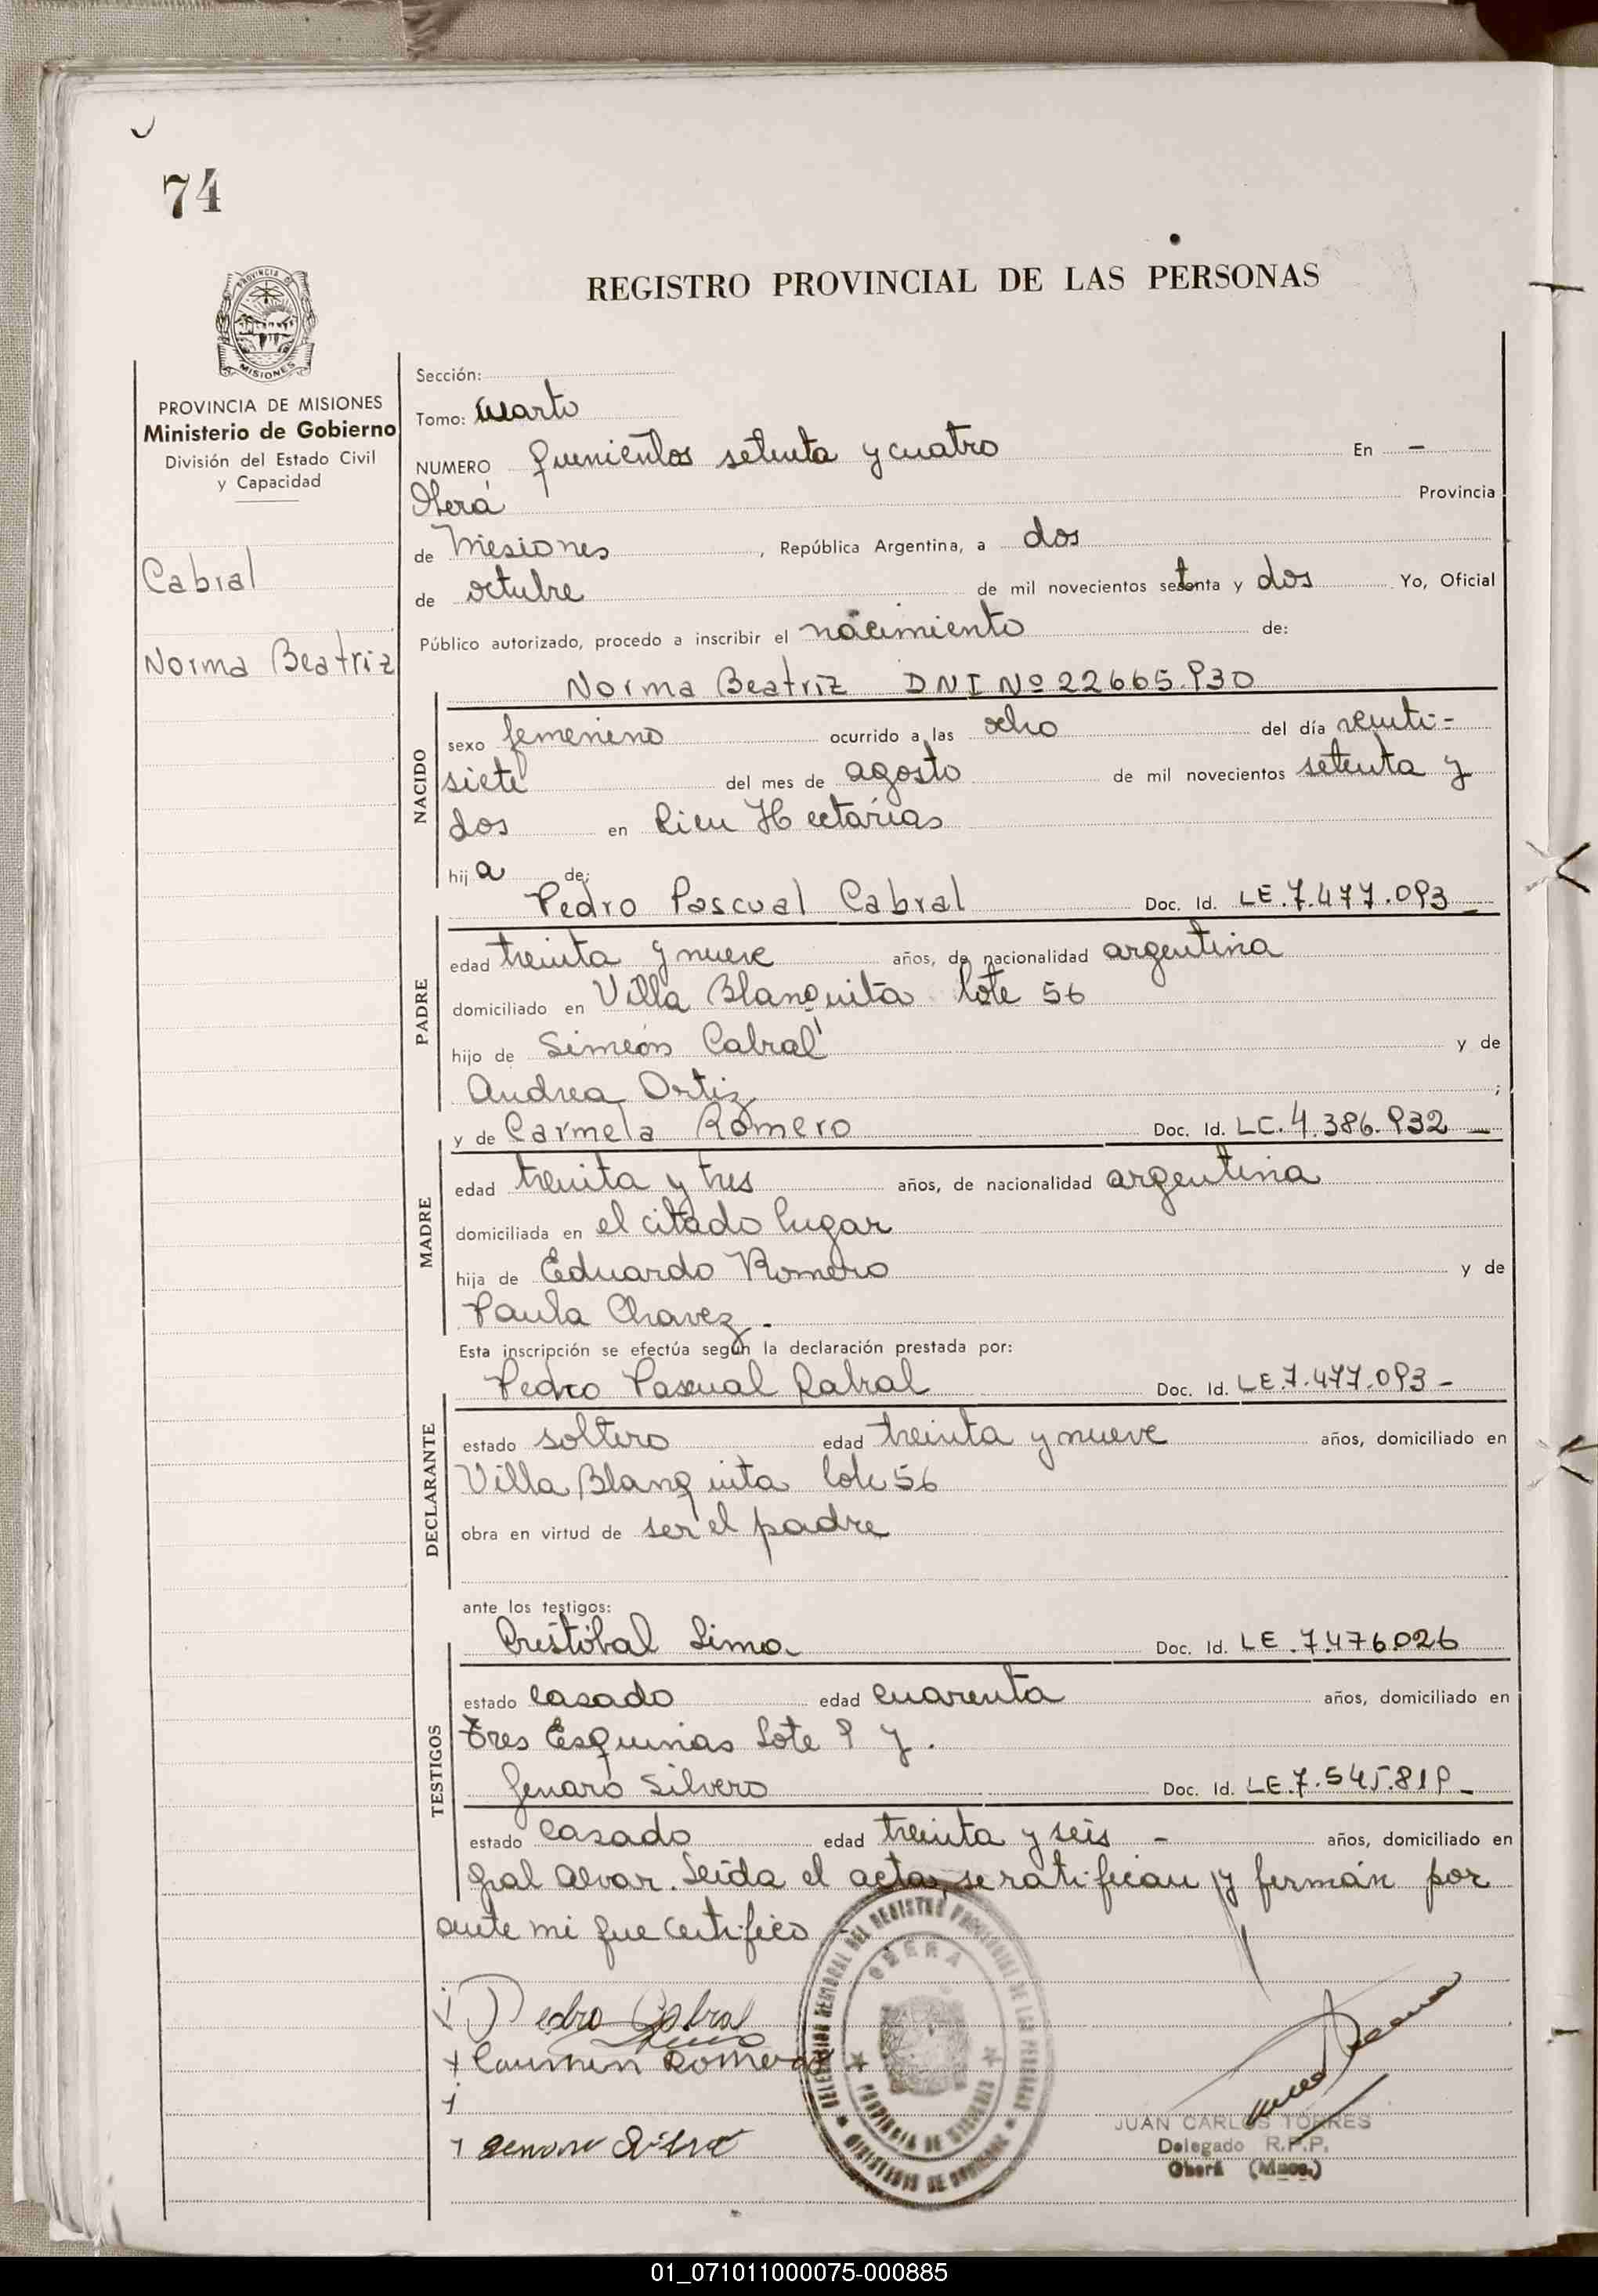 74
REGISTRO PROVINCIAL DE LAS PERSONAS
PROVINCIA DE MISIONES
Ministerio de Gobierno
División del Estado Civil
y Capacidad
Cabral
Norma Beatriz
Sección:
Tomo: Cuarto
NUMERO quinientos setenta y cuatro En -
Oberá Provincia
de Misiones, República Argentina, a dos
de octubre de mil novecientos setenta y dos Yo, Oficial
Público autorizado, procedo a inscribir el nacimiento de:
Norma Beatriz DNI Nº 22665.930
NACIDO
sexo femenino ocurrido a las ocho del día veinti-
siete del mes de agosto de mil novecientos setenta y
dos en Cien Hectárias
hija de:
Pedro Pascual Cabral Doc. Id. LE.7.477.093
PADRE
edad treinta y nueve años, de nacionalidad argentina
domiciliado en Villa Blanquita lote 56
hijo de Simeón Cabral y de
Andrea Ortiz ;
y de Carmela Romero Doc. Id. LC.4.386.932
MADRE
edad treinta y tres años, de nacionalidad argentina
domiciliada en el citado lugar
hija de Eduardo Romero y de
Paula Chavez.
Esta inscripción se efectúa según la declaración prestada por:
Pedro Pascual Cabral Doc. Id. LE.7.477.093-
DECLARANTE
estado soltero edad treinta y nueve años, domiciliado en
Villa Blanquita lote 56
obra en virtud de ser el padre
ante los testigos:
Cristóbal Lima Doc. Id. LE.7.476.026
TESTIGOS
estado casado edad cuarenta años, domiciliado en
Tres Esquinas Lote 9 y.
Genaro Silvero Doc. Id. LE.7.545.819
estado casado edad treinta y seis - años, domiciliado en
Gral Alvar. Leída el acta, se ratifican y firmán por
ante mi que certifico
Pedro Cabral
Carmen Romero
DELEGACION REGIONAL DEL REGISTRO PROVINCIAL DE LAS PERSONAS
OBERA
PROVINCIA DE MISIONES
MINISTERIO DE GOBIERNO
JUAN CARLOS TORRES
Delegado R.P.P.
Oberá (Mnes.)
01_071011000075-000885